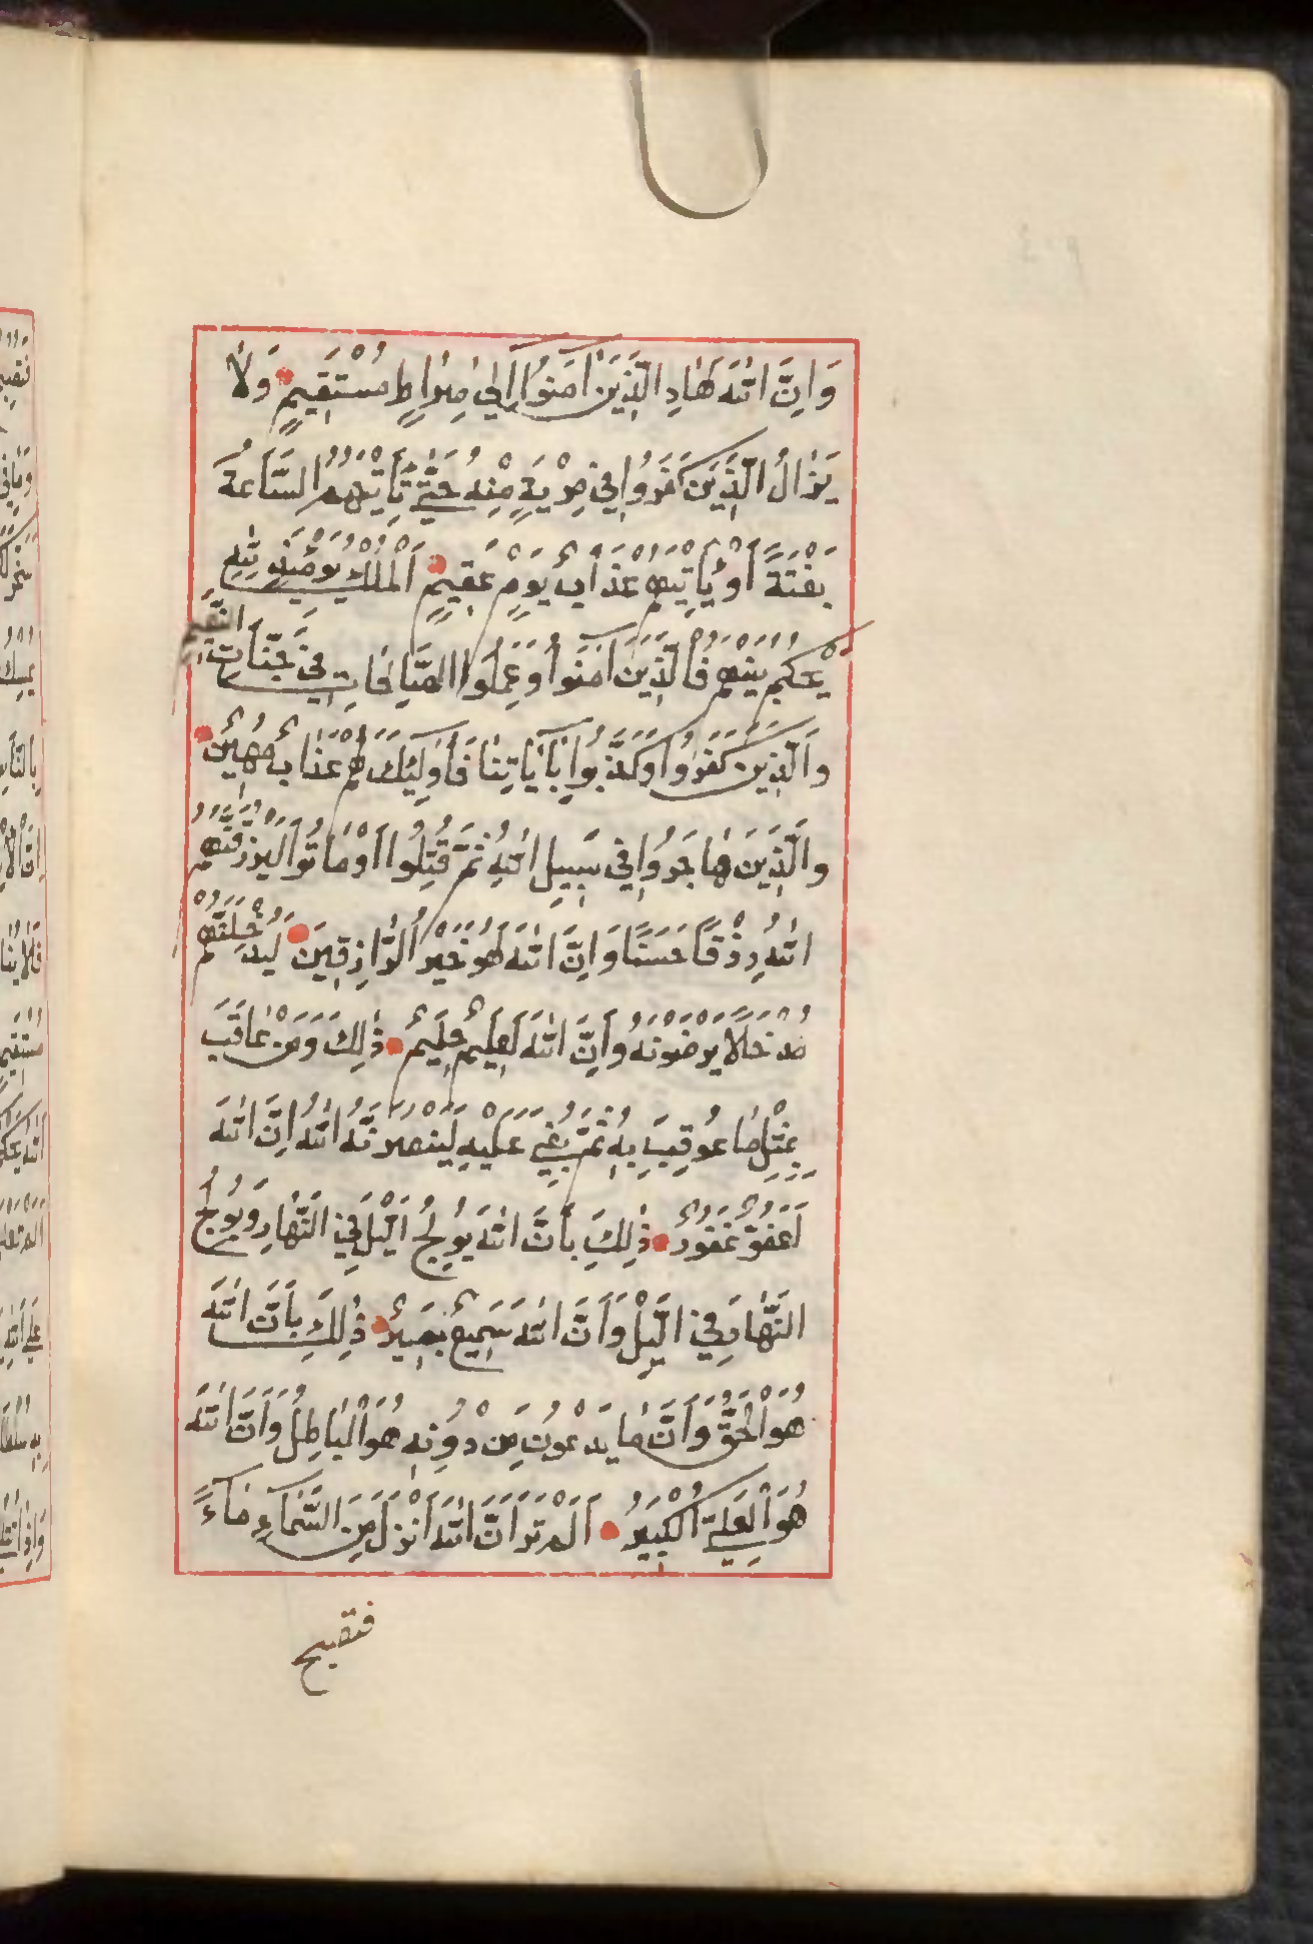 وَاِنَّ اللّٰهَ لَهَادِ الَّذِينَ اٰمَنُوا اِلٰي صِرَاطٍ مُسْتَقِيمٍ وَلَا
يَزَالُ الَّذِينَ كَفَرُوا فِي مِرْيَةٍ مِنْهُ حَتّٰي تَأْتِيَهُمُ السَّاعَةُ
بَغْتَةً أَوْ يَأْتِيَهُمْ عَذَابُ يَوْمٍ عَقِيمٍ اَلْمُلْكُ يَوْمَئِذٍ لِلّٰهِ
يَحْكُمُ بَيْنَهُمْ فَالَّذِينَ اٰمَنُوا وَعَمِلُوا الصَّالِحَاتِ فِي جَنَّاتِ النَّعِيمِ
وَالَّذِينَ كَفَرُوا وَكَذَّبُوا بِآيَاتِنَا فَأُولٰئِكَ لَهُمْ عَذَابٌ مُهِينٌ
وَالَّذِينَ هَاجَرُوا فِي سَبِيلِ اللّٰهِ ثُمَّ قُتِلُوا اَوْ مَاتُوا لَيَرْزُقَنَّهُمُ
اللّٰهُ رِزْقًا حَسَنًا وَاِنَّ اللّٰهَ لَهُوَ خَيْرُ الرَّازِقِينَ لَيُدْخِلَنَّهُمْ
مُدْخَلًا يَرْضَوْنَهُ وَاِنَّ اللّٰهَ لَعَلِيمٌ حَلِيمٌ ذٰلِكَ وَمَنْ عَاقَبَ
بِمِثْلِ مَا عُوقِبَ بِهِ ثُمَّ بُغِيَ عَلَيْهِ لَيَنْصُرَنَّهُ اللّٰهُ اِنَّ اللّٰهَ
لَعَفُوٌّ غَفُورٌ ذٰلِكَ بِأَنَّ اللّٰهَ يُولِجُ الَّيْلَ فِي النَّهَارِ وَيُولِجُ
النَّهَارَ فِي الَّيْلِ وَاَنَّ اللّٰهَ سَمِيعٌ بَصِيرٌ ذٰلِكَ بِأَنَّ اللّٰهَ
هُوَ الْحَقُّ وَاَنَّ مَا يَدْعُونَ مِنْ دُونِهِ هُوَ الْبَاطِلُ وَاَنَّ اللّٰهَ
هُوَ الْعَلِيُّ الْكَبِيرُ اَلَمْ تَرَ اَنَّ اللّٰهَ اَنْزَلَ مِنَ السَّمَاءِ مَاءً
فتصبح